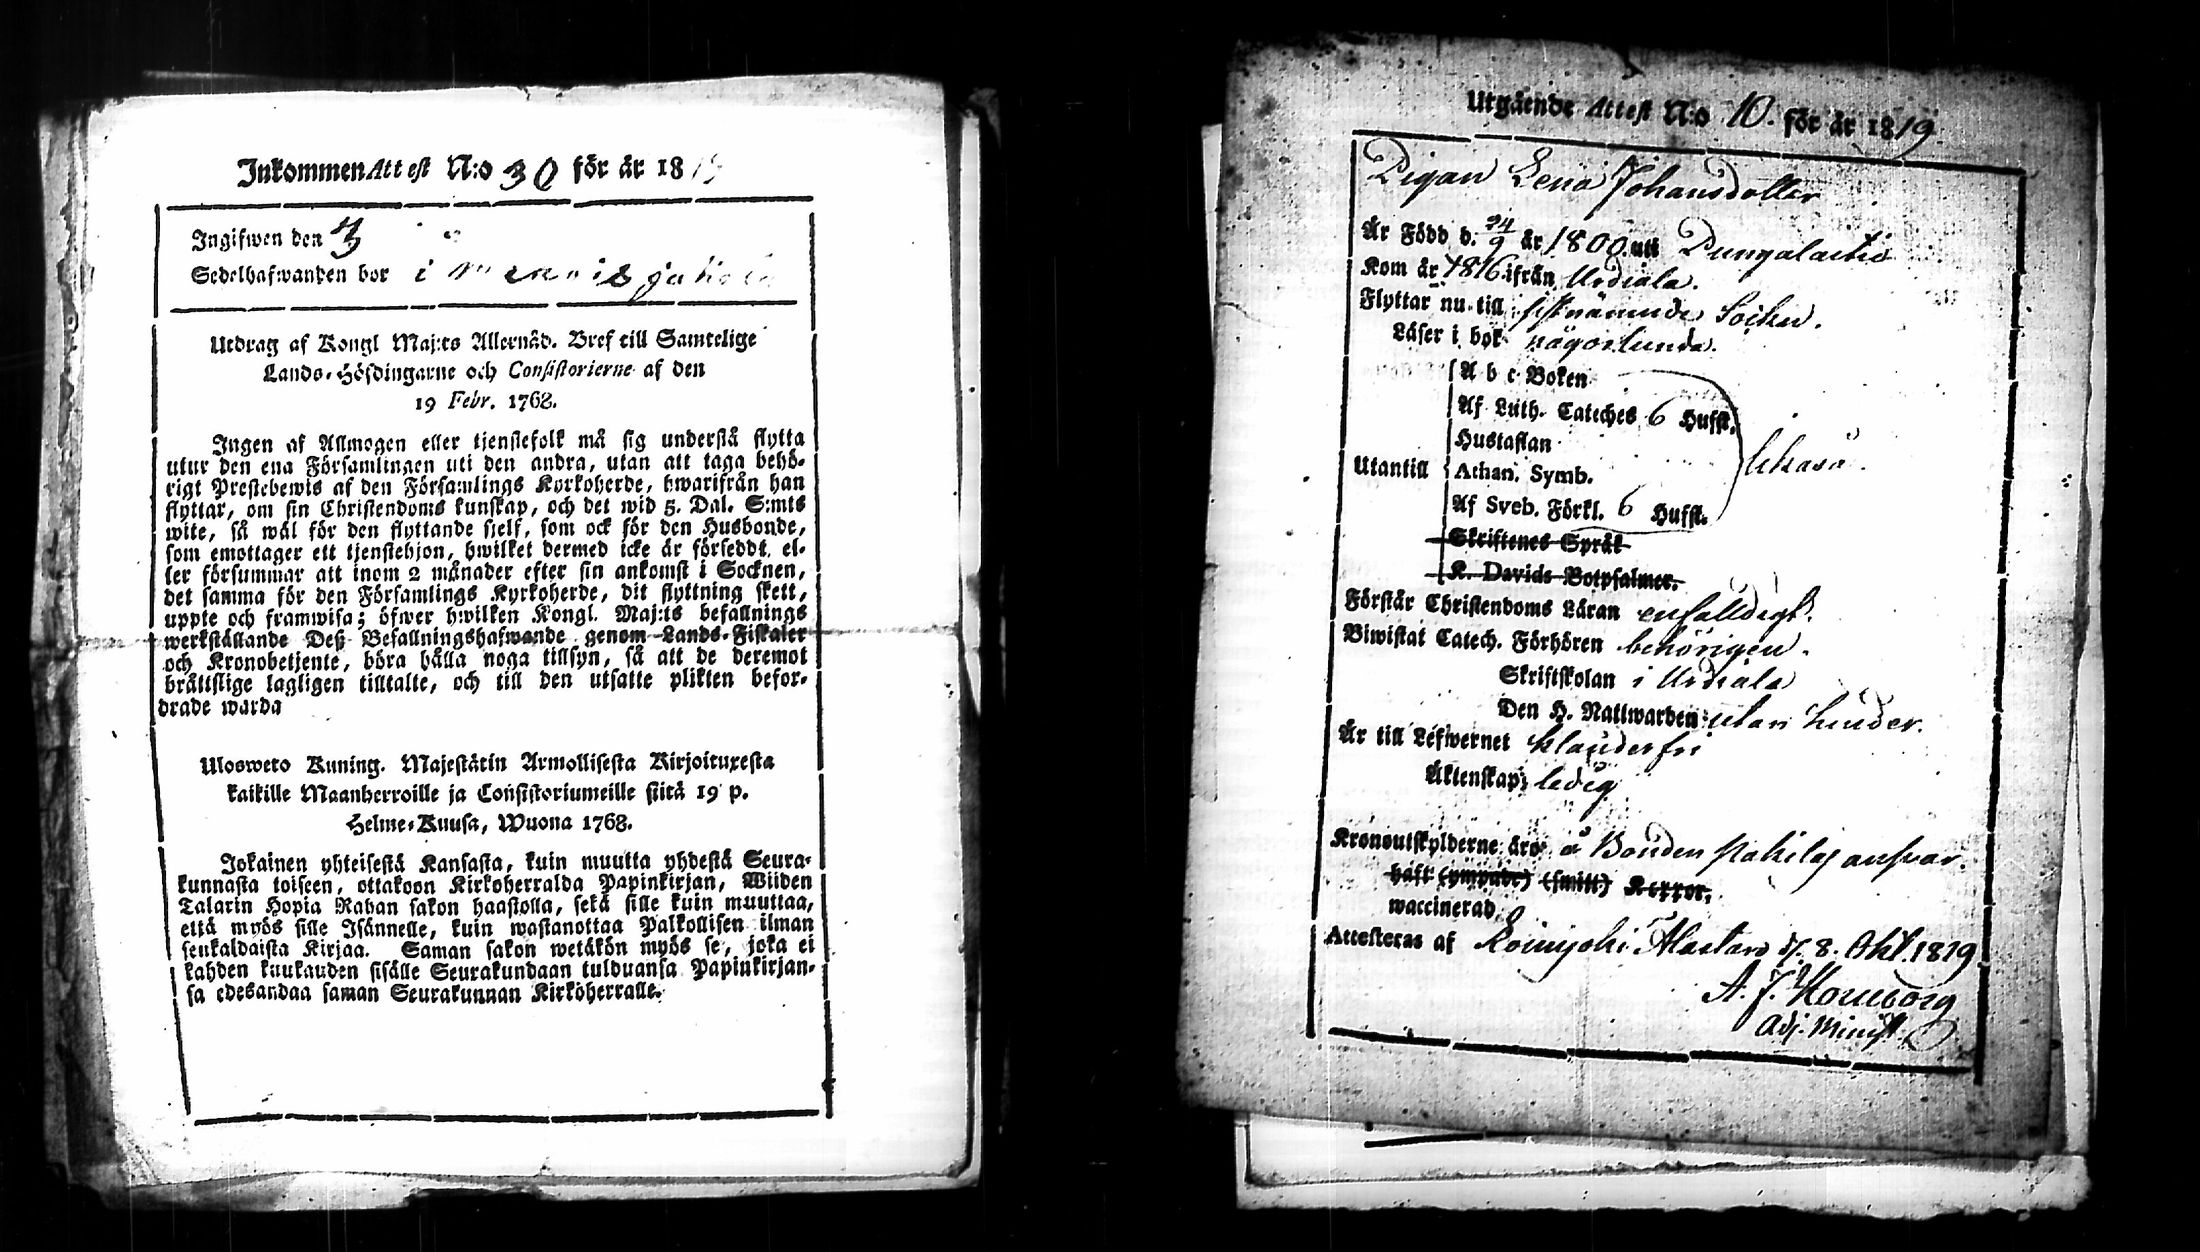 Inkommen Attest N:o 30 för år 1819
Ingifwen den
Sedelhafwanden bor i
Utdrag af Kongl Maj:ts Allernåd. Bref till Samtelige
Lands-Höfdingarne och Consistorierne af den
19 Febr. 1768.
Ingen af Allmogen eller tjenstefolk må sig understå flytta
utur den ena Församlingen uti den andra, utan att taga behö-
rigt Prestebewis af den Församlings Kyrkoherde, hwarifrån han
flyttar, om sin Christendoms kunskap, och det wid 5. Dal. S:mts
wite, så wäl för den flyttande sjelf, som ock för den Husbonde,
som emottager ett tjenstehjon, hwilket dermed icke är försedt, el-
ler försummar att inom 2 månader efter sin ankomst i Socknen,
det samma för den Församlings Kyrkoherde, dit flyttning skett,
uppte och framwisa; öfwer hwilken Kongl. Maj:ts befallnings
werkställande Deß Befallningshafwande genom Lands-Fiskaler
och Kronobetjente, böra hålla noga tillsyn, så att de deremot
bråttslige lagligen tilltalte, och till den utsatte plikten befor-
drade warda
Ulosweto Kuning. Majestätin Armollisesta Kirjoituxesta
kaikille Maanherroille ja Consistoriumeille siitä 19 p.
Helme-Kuusa, Wuona 1768.
Jokainen yhteisestä Kansasta, kuin muutta yhdestä Seura-
kunnasta toiseen, ottakoon Kirkoherralda Papinkirjan, Wiiden
Talarin Hopia Rahan sakon haastolla, sekä sille kuin muuttaa,
että myös sille Isännelle, kuin wastanottaa Palkollisen ilman
senkaldaista Kirjaa. Saman sakon wetäkön myös se, joka ei
kahden kuukauden sisälle Seurakundaan tulduansa Papinkirjan-
sa edesandaa saman Seurakunnan Kirköherralle.
Utgående Attest N:o 10. för år 1819
Pigan Lena Johansdotter
År Född d. 24/9 år 1800 uti Pungalaitio
Kom år 1816 ifrån Urdiala.
Flyttar nu till sistnämnde Sockn.
Läser i bok någorlunda.
A b c Boken
Af Luth. Cateches 6 Hufst.
Hustaflan
Utantill Athan. Symb. likaså.
Af Sveb. Förkl. 6 Hufst.
Skriftenes Språk
K. Davids Botpsalmer.
Förstår Christendoms Läran enfalldigt.
Biwistat Catech. Förhören behörigen.
Skriftskolan i Urdiala
Den H. Nattwarden utan hinder.
År till Lefwernet klanderfri
Äktenskap; ledig
Kronoutskylderne äro å Bonden ansvar.
haft (ympade) (smitt) Koppor,
waccinerad
Attesteras af Loimijoki Alastaro d. 8. Okt. 1819
A. J. Horneborg
Adj. Minist.